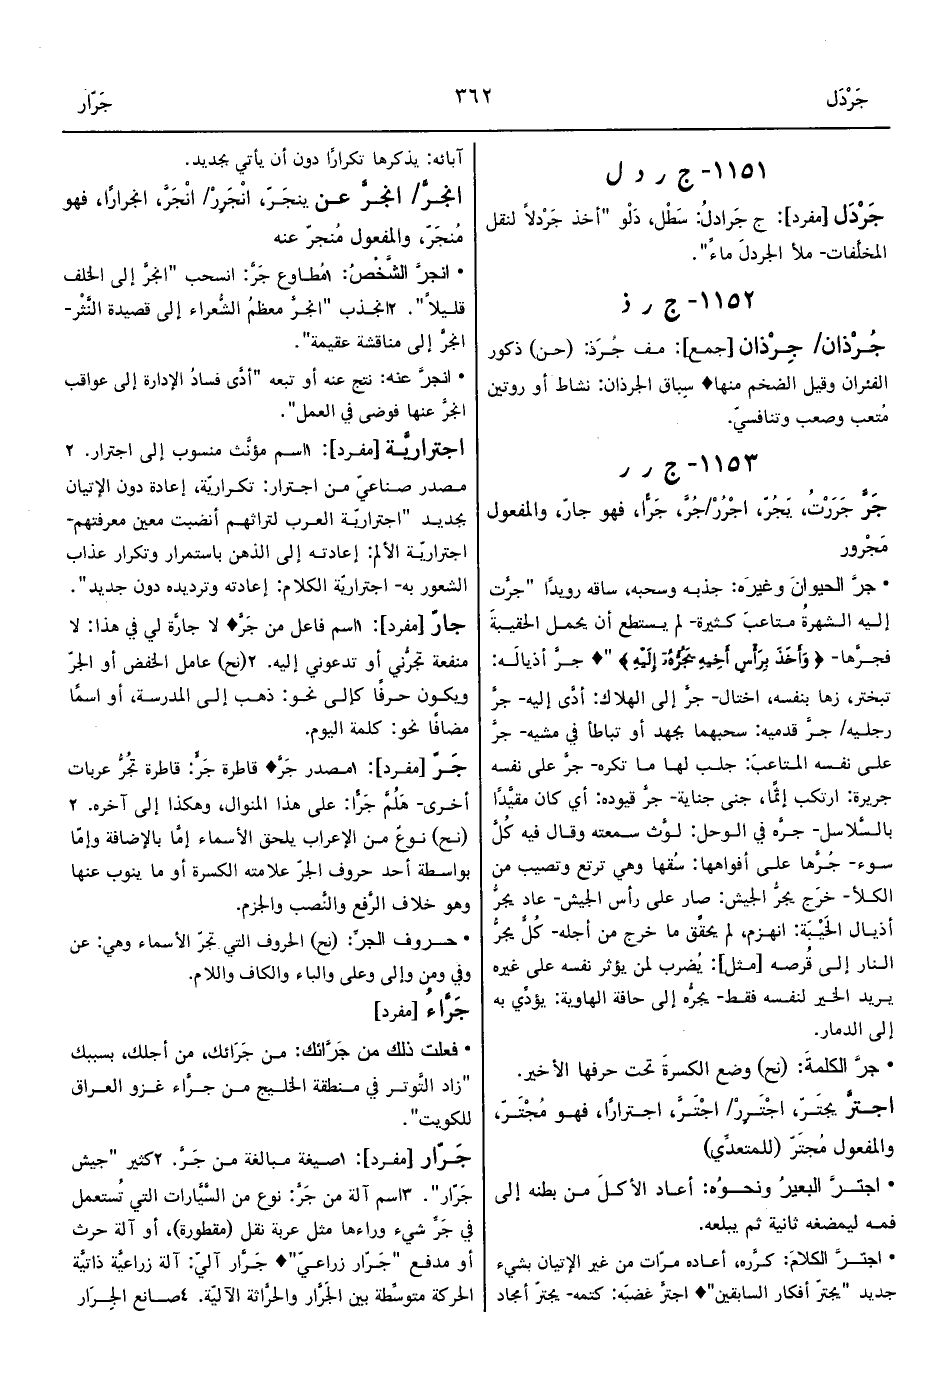 جَرْدَل
٣٦٢
جَرّار
١١٥١- ج ر د ل
جَرْدَل [مفرد]: ج جَرادلُ: سَطْل، دَلْو "أخذ جَرْدلاً لنقل
المخلّفات- ملأ الجردلَ ماءً".
١١٥٢- ج ر ذ
جُرْذان/ جِرْذان [جمع]: مف جُرَذ: (حن) ذكور
الفئران وقيل الضخم منها♦ سِباق الجرذان: نشاط أو روتين
مُتعب وصعب وتنافسيّ.
١١٥٣- ج ر ر
جَرَّ جَرَرْتُ، يَجُرّ، اجْرُرْ/جُرَّ، جَرًّا، فهو جارّ، والمفعول
مَجْرور
• جرَّ الحيوانَ وغيرَه: جذبه وسحبه، ساقه رويدًا "جرَّت
إليه الشهرةُ متاعبَ كثيرة- لم يستطع أن يحمل الحقيبةَ
فجرَّها- ﴿وَأَخَذَ بِرَأْسِ أَخِيهِ يَجُرُّهُ إِلَيْهِ﴾"♦ جرَّ أذيالَه:
تبختر، زها بنفسه، اختال- جرَّ إلى الهلاك: أدّى إليه- جرَّ
رجليه/ جرَّ قدميه: سحبهما بجهد أو تباطأ في مشيه- جرَّ
على نفسه المتاعبَ: جلب لها ما تكره- جرَّ على نفسه
جريرة: ارتكب إثمًا، جنى جناية- جرَّ قيوده: أي كان مقيَّدًا
بالسَّلاسل- جرَّه في الوحل: لوَّث سمعته وقال فيه كُلَّ
سوء- جُرَّها على أفواهها: سُقها وهي ترتع وتصيب من
الكلأ- خرَج يجرُّ الجيشَ: صار على رأس الجيش- عاد يجرُّ
أذيال الخَيْبَة: انهزم، لم يحقِّق ما خرج من أجله- كُلٌّ يجرُّ
النار إلى قُرصه [مثل]: يُضرب لمن يؤثر نفسه على غيره
يريد الخير لنفسه فقط- يجرُّه إلى حافة الهاوية: يؤدِّي به
إلى الدمار.
• جرَّ الكلمةَ: (نح) وضع الكسرة تحت حرفها الأخير.
اجترَّ يجتَرّ، اجْتَرِرْ/ اجْتَرَّ، اجترارًا، فهو مُجْتَرّ،
والمفعول مُجتَرّ (للمتعدِّي)
• اجترَّ البعيرُ ونحوُه: أعاد الأكلَ من بطنه إلى
فمه ليمضغه ثانية ثم يبلعه.
• اجترَّ الكلامَ: كرَّره، أعاده مرّات من غير الإتيان بشيء
جديد "يجترّ أفكار السابقين"♦ اجترَّ غضبَه: كتمه- يجترّ أمجاد
آبائه: يذكرها تكرارًا دون أن يأتي بجديد.
انجرَّ/ انجرَّ عن ينجَرّ، انْجَرِرْ/ انْجَرَّ، انجرارًا، فهو
مُنجَرّ، والمفعول مُنجرّ عنه
• انجرَّ الشَّخْصُ: ١مُطاوع جَرَّ: انسحب "انجرَّ إلى الخلف
قليلاً". ٢انجذب "انجرَّ معظمُ الشُّعراء إلى قصيدة النَّثْر-
انجرَّ إلى مناقشة عقيمة".
• انجرَّ عنه: نتج عنه أو تبعه "أدَّى فسادُ الإدارة إلى عواقب
انجرَّ عنها فوضى في العمل".
اجتراريَّة [مفرد]: ١اسم مؤنَّث منسوب إلى اجترار. ٢
مصدر صناعيّ من اجترار: تكراريّة، إعادة دون الإتيان
بجديد "اجتراريّة العرب لتراثهم أنضبت معين معرفتهم-
اجتراريّة الألم: إعادته إلى الذهن باستمرار وتكرار عذاب
الشعور به- اجتراريّة الكلام: إعادته وترديده دون جديد".
جارّ [مفرد]: ١اسم فاعل من جَرَّ♦ لا جارّة لي في هذا: لا
منفعة تجرُّني أو تدعوني إليه. ٢(نح) عامل الخفض أو الجرّ
ويكون حرفًا كإلى نحو: ذهب إلى المدرسة، أو اسمًا
مضافًا نحو: كلمة اليوم.
جَرّ [مفرد]: ١مصدر جَرَّ♦ قاطرة جَرٍّ: قاطرة تجُرُّ عربات
أخرى- هَلُمَّ جَرًّا: على هذا المنوال، وهكذا إلى آخره. ٢
(نح) نوعٌ من الإعراب يلحق الأسماء إمَّا بالإضافة وإمّا
بواسطة أحد حروف الجرّ علامته الكسرة أو ما ينوب عنها
وهو خلاف الرَّفع والنَّصب والجزم.
• حروف الجرِّ: (نح) الحروف التي تجرّ الأسماء وهي: عن
وفي ومن وإلى وعلى والباء والكاف واللام.
جَرَّاءُ [مفرد]
• فعلت ذلك من جَرّائك: من جرّائك، من أجلك، بسببك
"زاد التَّوتر في منطقة الخليج من جرَّاء غزو العراق
للكويت".
جَرّار [مفرد]: ١صيغة مبالغة من جَرَّ. ٢كثير "جيش
جَرّار". ٣اسم آلة من جَرَّ: نوع من السَّيَّارات التي تُستعمل
في جَرِّ شيء وراءها مثل عربة نقل (مقطورة)، أو آلة حرث
أو مدفع "جَرّار زراعيّ"♦ جَرّار آليّ: آلة زراعيَّة ذاتيَّة
الحركة متوسِّطة بين الجرَّار والحرَّاثة الآليّة. ٤صانع الجِرار